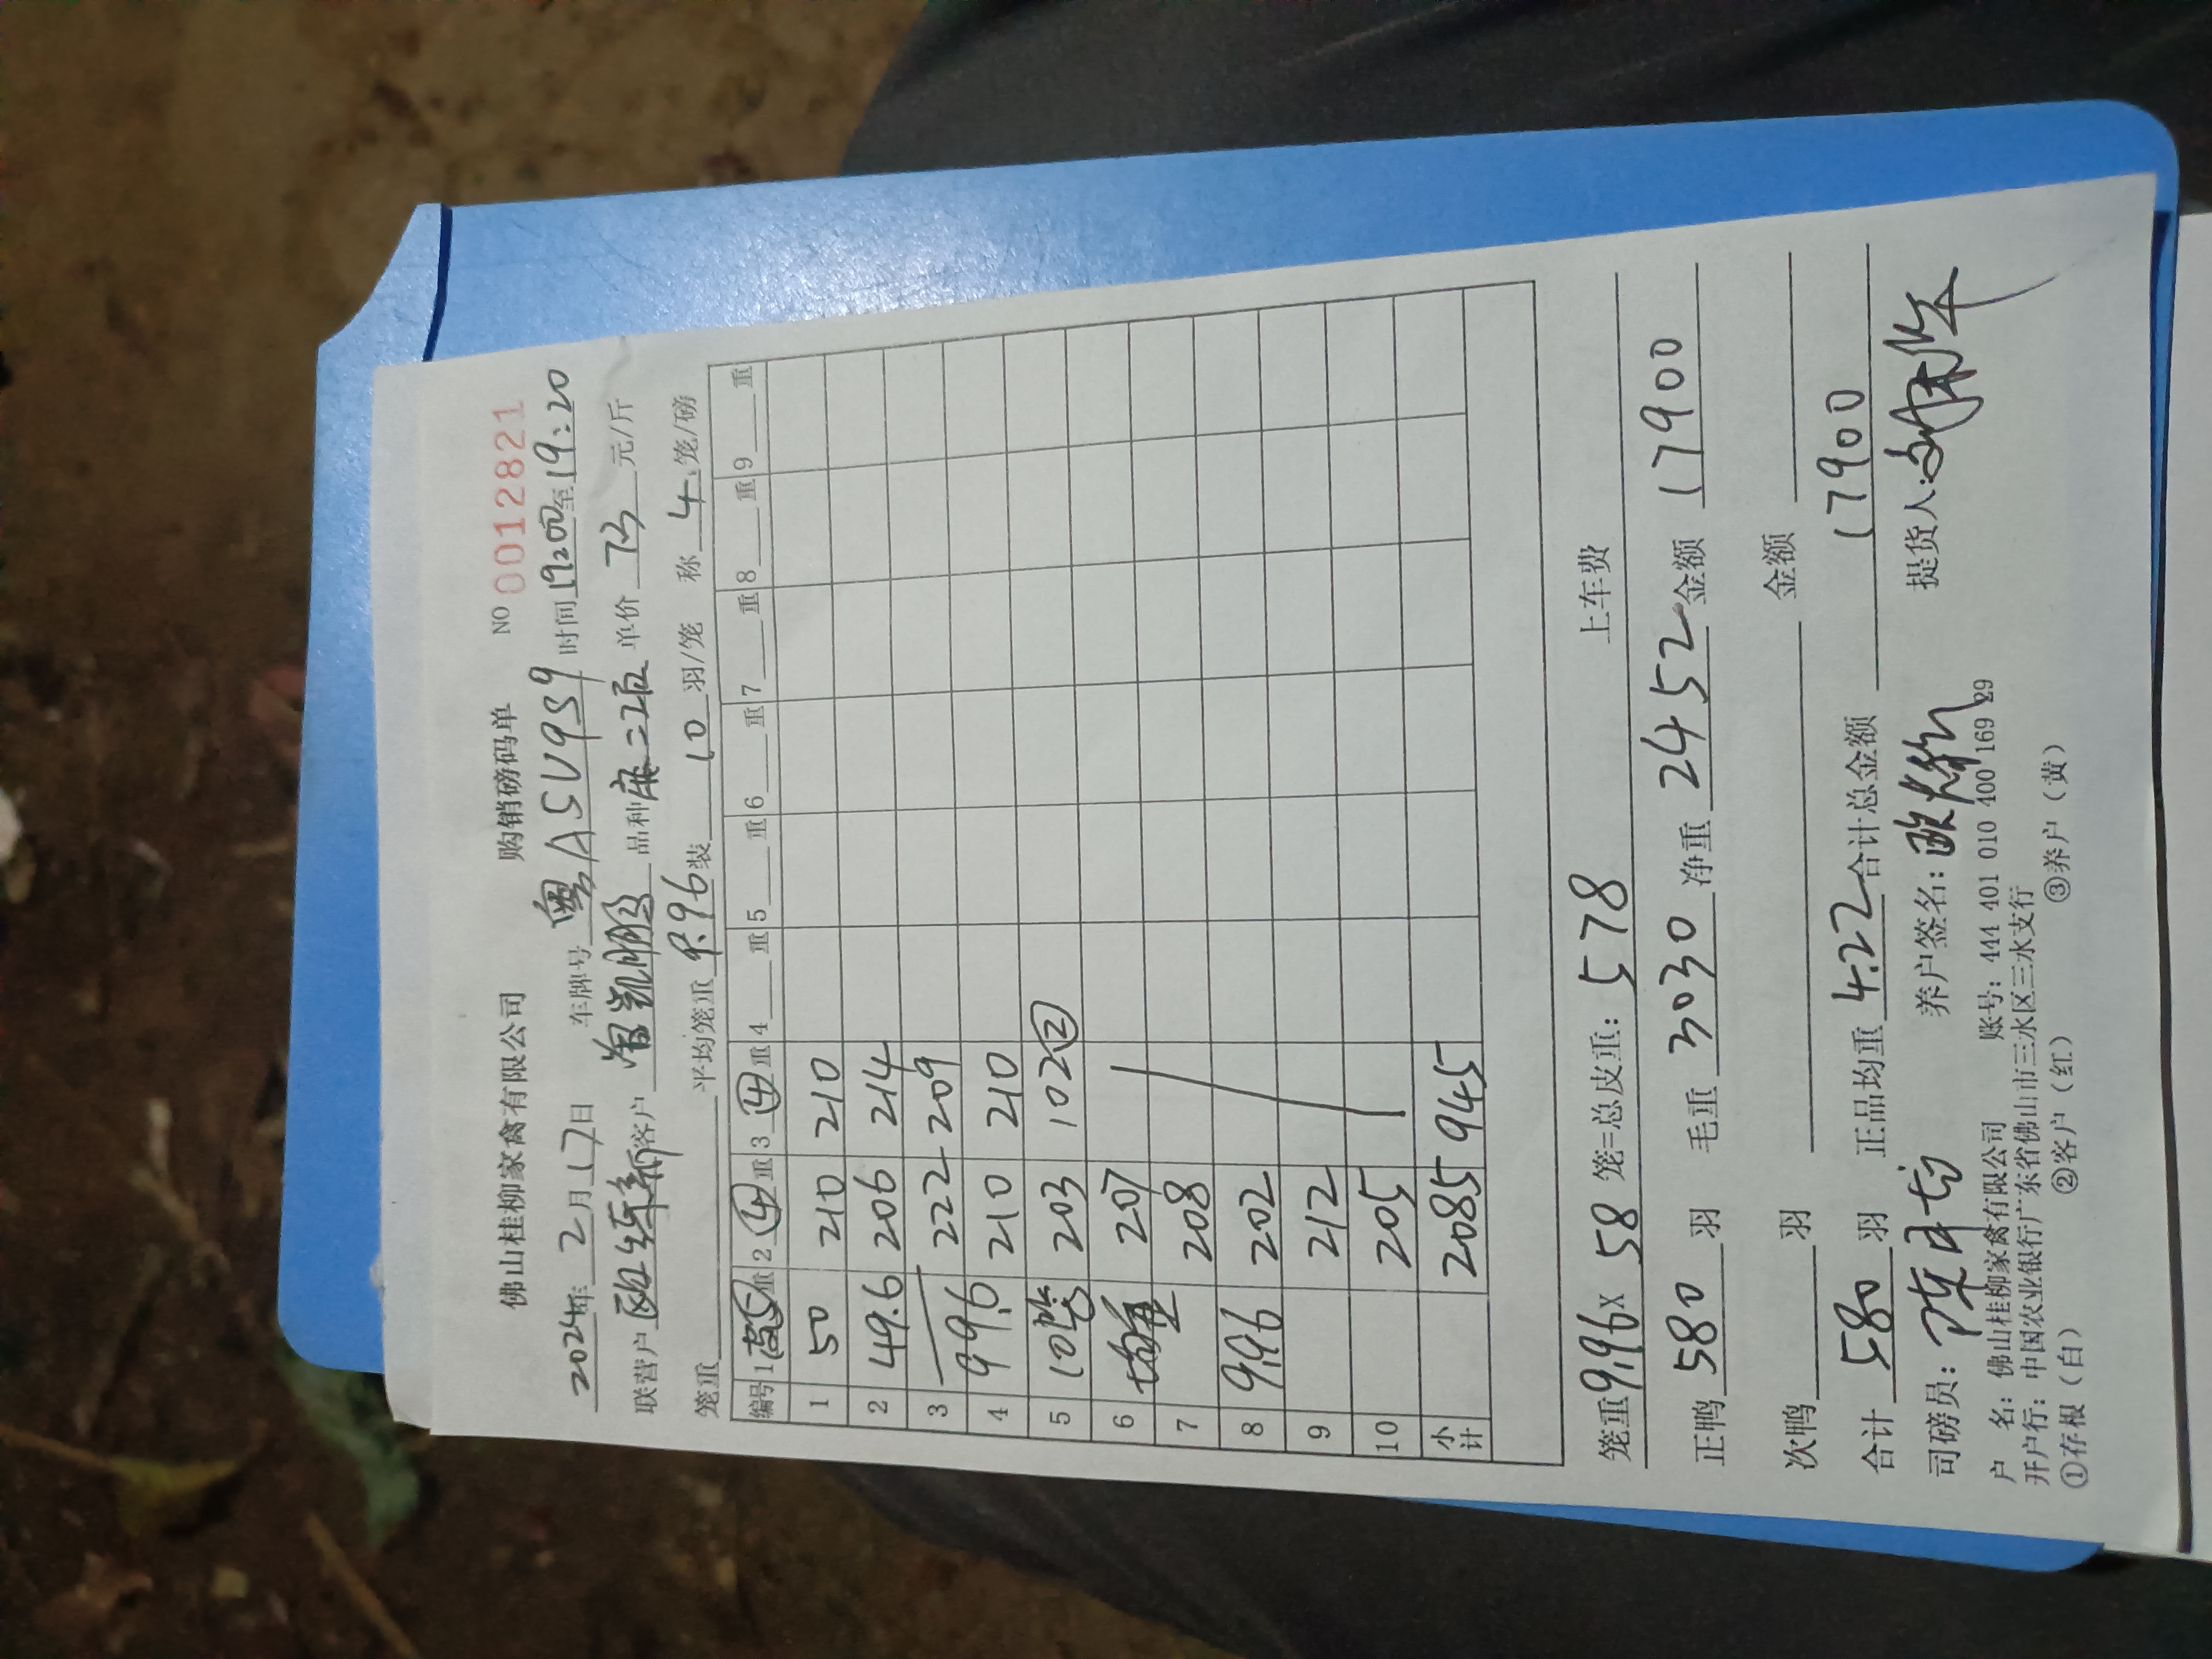 佛山桂柳家禽有限公司 购销磅码单 NO 0012821
2024年2月17日 车牌号 粤A5U9S9 时间 19:00至19:20
联营户 客户 品种 麻二 单价 7.3 元/斤
笼重 平均笼重 9.96 装 10 羽/笼 称 4 笼/磅
编号 1 重 2 ④ 重 3 ④ 重 4 重 5 重 6 重 7 重 8 重 9 重
1 50 210 210
2 49.6 206 214
3 222 209
4 99.6 210 210
5 10笼 203 102②
6 均重 207
7 208
8 9.96 202
9 212
10 205
小计 2085 945
笼重 9.96 x 58 笼=总皮重: 578 上车费
正鸭 580 羽 毛重 3030 净重 2452 金额 17900
次鸭 羽 金额
合计 580 羽 正品均重 4.22 合计总金额 17900
司磅员: 养户签名: 提货人:
户 名: 佛山桂柳家禽有限公司 账号: 444 401 010 400 169 29
开户行: 中国农业银行广东省佛山市三水区三水支行
①存根（白） ②客户（红） ③养户（黄）